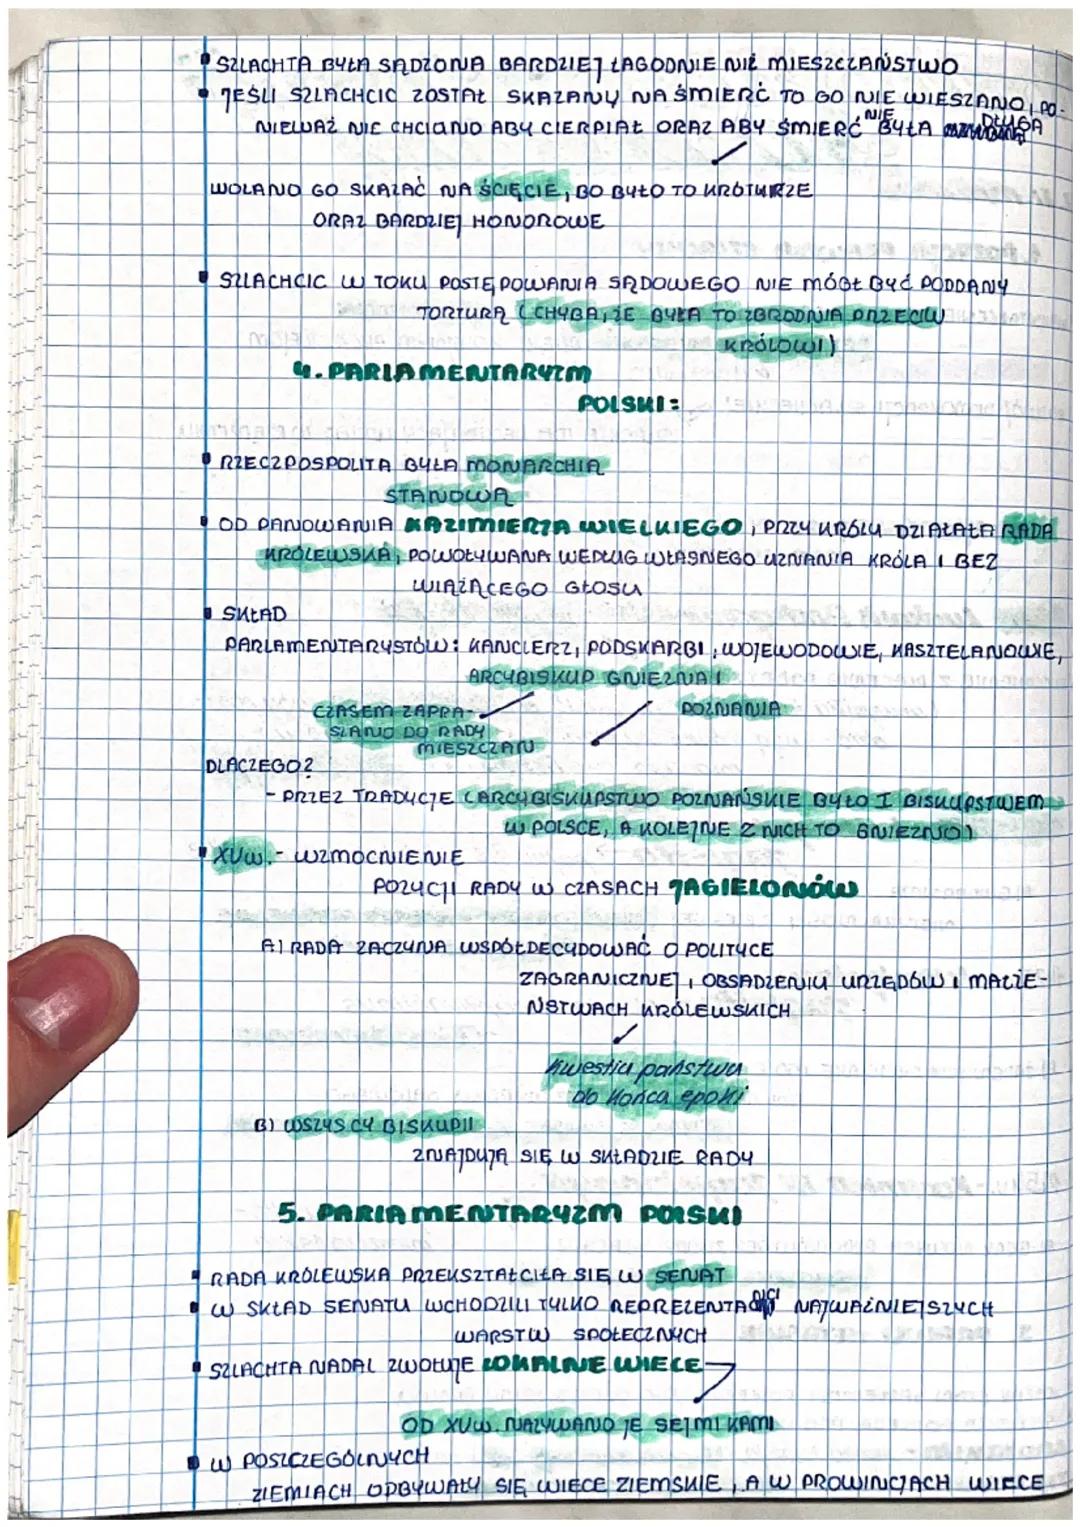 SZLACHTA BYŁA SĄDZONA BARDZIEJ ŁAGODNIE NIŻ MIESZCZAŃSTWO
JEŚLI SZLACHCIC ZOSTAŁ SKAZANY NA ŚMIERĆ TO GO NIE WIESZANO, PO-
NIEWAŻ NIE CHCIANO ABY CIERPIAŁ ORAZ ABY ŚMIERĆ NIE BYŁA DŁUGA
WOLANO GO SKAZAĆ NA ŚCIĘCIE, BO BYŁO TO KRÓTKRZE
ORAZ BARDZIEJ HONOROWE
SZLACHCIC W TOKU POSTĘPOWANIA SĄDOWEGO NIE MÓGŁ BYĆ PODDANY
TORTURĄ (CHYBA, ŻE BYŁA TO ZBRODNIA PRZECIW
KRÓLOWI)
4. PARLAMENTARYZM
POLSKI:
RZECZPOSPOLITA BYŁA MONARCHIĄ
STANOWĄ
OD PANOWANIA KAZIMIERZA WIELKIEGO, PRZY KRÓLU DZIAŁAŁA RADA
KRÓLEWSKA, POWOŁYWANA WEDŁUG WŁASNEGO UZNANIA KRÓLA I BEZ
WIĄŻĄCEGO GŁOSU
SKŁAD
PARLAMENTARYSTÓW: KANCLERZ, PODSKARBI, WOJEWODOWIE, KASZTELANOWIE,
ARCYBISKUP GNIEZNA I
CZASEM ZAPRA- POZNANIA
SZANO DO RADY
MIESZCZAN
DLACZEGO?
- PRZEZ TRADYCJE (ARCYBISKUPSTWO POZNAŃSKIE BYŁO I BISKUPSTWEM
W POLSCE, A KOLEJNE Z NICH TO GNIEZNO)
XV w. - WZMOCNIENIE
POZYCJI RADY W CZASACH JAGIELONÓW
A) RADA ZACZYNA WSPÓŁDECYDOWAĆ O POLITYCE
ZAGRANICZNEJ, OBSADZENIU URZĘDÓW I MAŁŻE-
ŃSTWACH KRÓLEWSKICH
Kwestia państwa
do końca epoki
B) WSZYSCY BISKUPII
ZNAJDUJĄ SIĘ W SKŁADZIE RADY
5. PARLAMENTARYZM POLSKI
RADA KRÓLEWSKA PRZEKSZTAŁCIŁA SIĘ W SENAT
W SKŁAD SENATU WCHODZILI TYLKO REPREZENTANCI NAJWAŻNIEJSZYCH
WARSTW SPOŁECZNYCH
SZLACHTA NADAL ZWOŁUJE LOKALNE WIECE
OD XV w. NAZYWANO JE SEJMIKAMI
W POSZCZEGÓLNYCH
ZIEMIACH ODBYWAŁY SIĘ WIECE ZIEMSKIE, A W PROWINCJACH WIECE